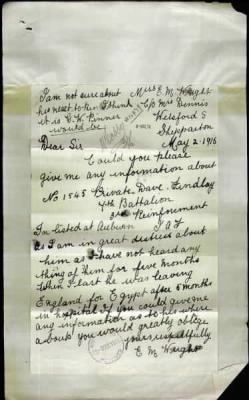 I am not sure about
his next to kin I think
it is C. W. Pinner
would be
Miss E M Wright
C/o Mrs Dennis
Welsford S
Shepparton
May 2 - 1916
Dear Sir
Could you please
give me any information about
No 1545 Private Dave. Findlay
4th Battalion
3rd Reinforment
In listed at Auburn I A F
as I am in great distress about
him as I have not heard any
thing of him for five months
when I last he was leaving
England for Egypt after 5 months
in hospital if you could give me
any information as to his where
abouts you would greatly oblige
yours respectfully
E M Wright